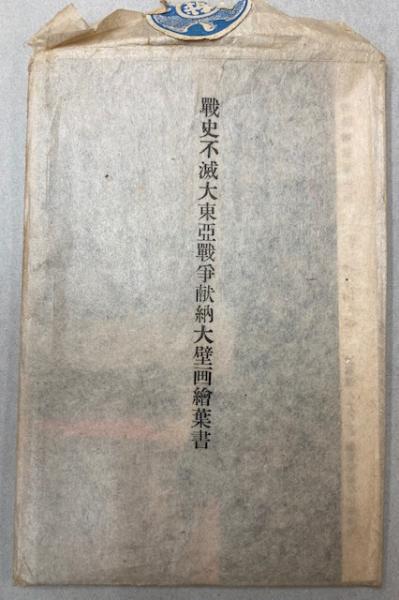 戰史不滅大東亞戰爭献納大壁画繪葉書